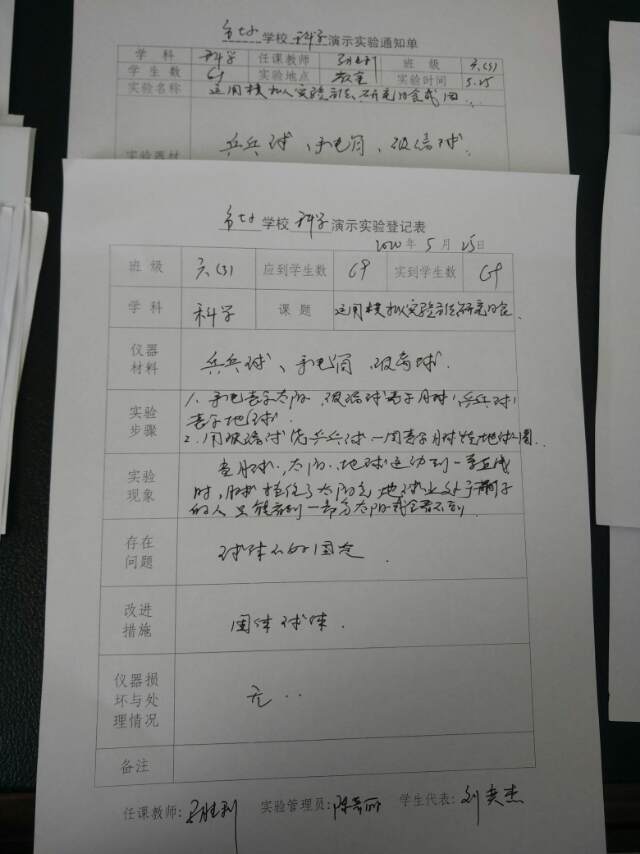 学校 科学 演示实验通知单
学科 科学 任课教师 班级 六(3)
学生数 实验地点 教室 实验时间 5.25
实验名称 运用模拟实验方法研究日食成因.
实验器材 乒乓球、手电筒、玻璃球.
学校 科学 演示实验登记表
2020年5月25日
班级 六(3) 应到学生数 69 实到学生数 69
学科 科学 课题 运用模拟实验方法研究日食.
仪器材料 乒乓球、手电筒、玻璃球.
实验步骤 1、手电表示太阳,玻璃球表示月球,乒乓球
表示地球.
2、用玻璃球绕乒乓球一周表示月球绕地球一周.
实验现象 当月球、太阳、地球运动到一条直线
时,月球挡住了太阳光,地球上处于影子
的人只能看到一部分太阳或全看不到.
存在问题 球体不的固定.
改进措施 固体球体.
仪器损坏与处理情况 无..
备注
任课教师: 胜利 实验管理员: 学生代表: 刘奕杰